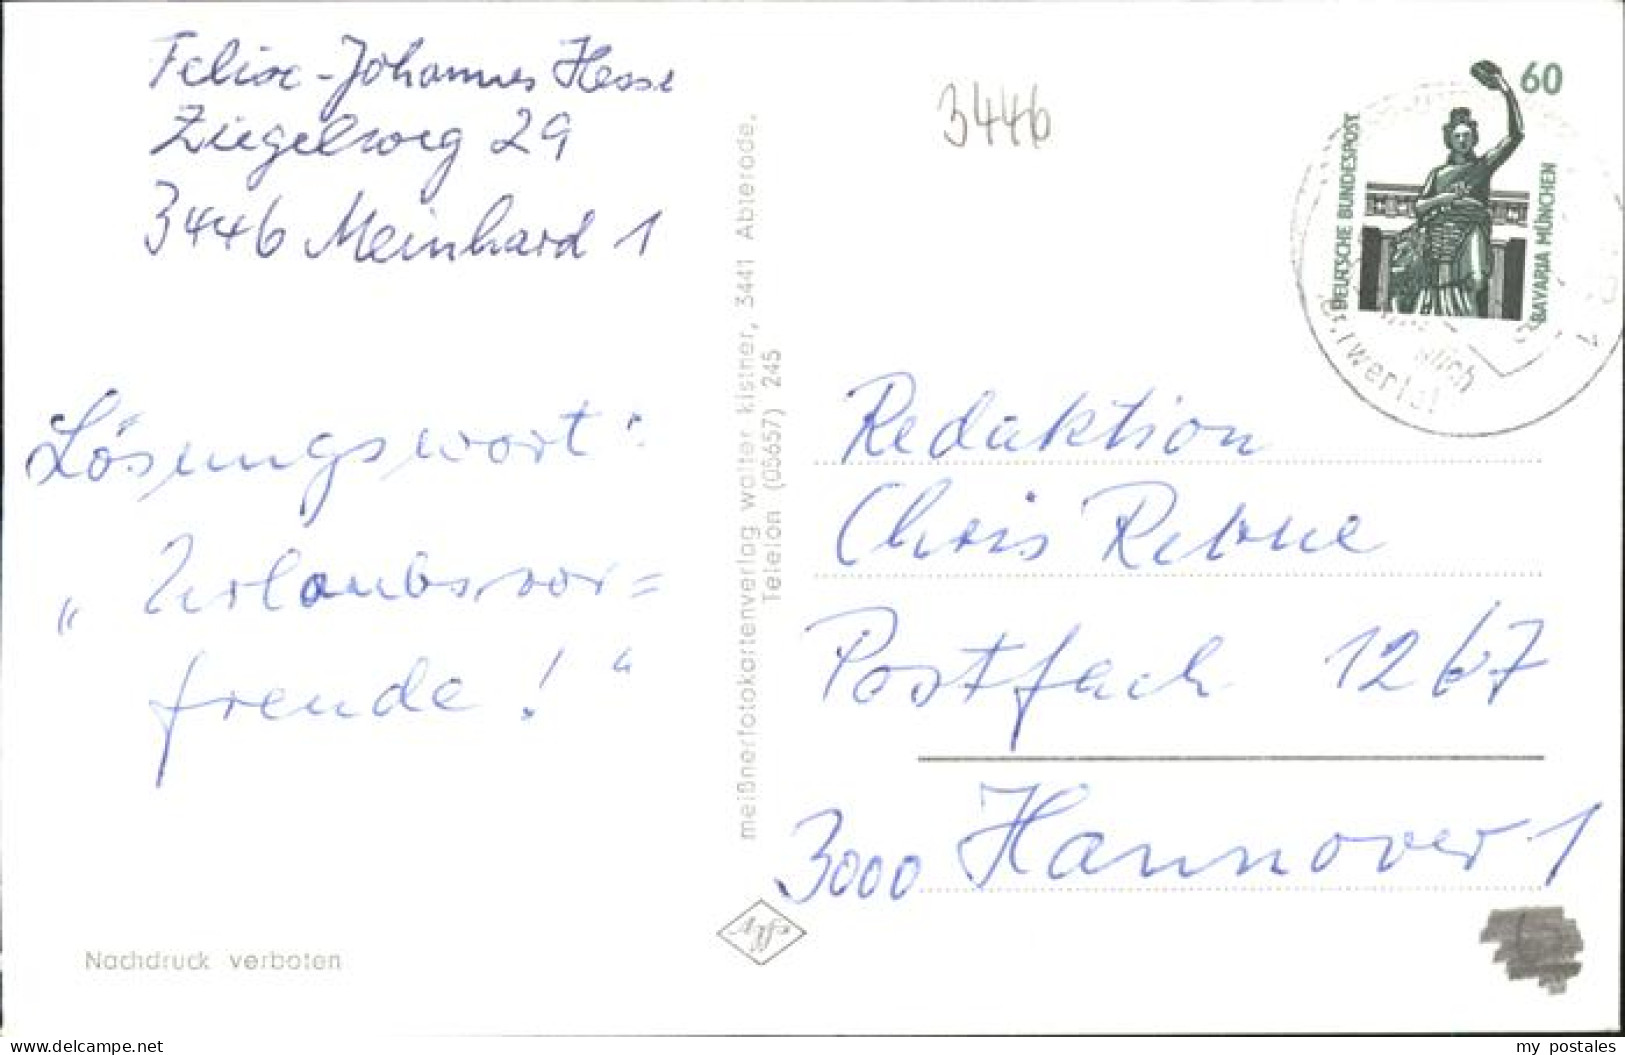 Felix-Johannes Hesse
Ziegelweg 29
3446 Meinhard 1
Lösungswort:
„Urlaubsvor=
freude!“
Nachdruck verboten
meißnerfotokartenverlag walter kistner, 3441 Abterode,
Telefon (05657) 245
3446
60
DEUTSCHE BUNDESPOST
BAVARIA MÜNCHEN
Redaktion
Chris Rebne
Postfach 1267
3000 Hannover 1
www.delcampe.net
my_postales